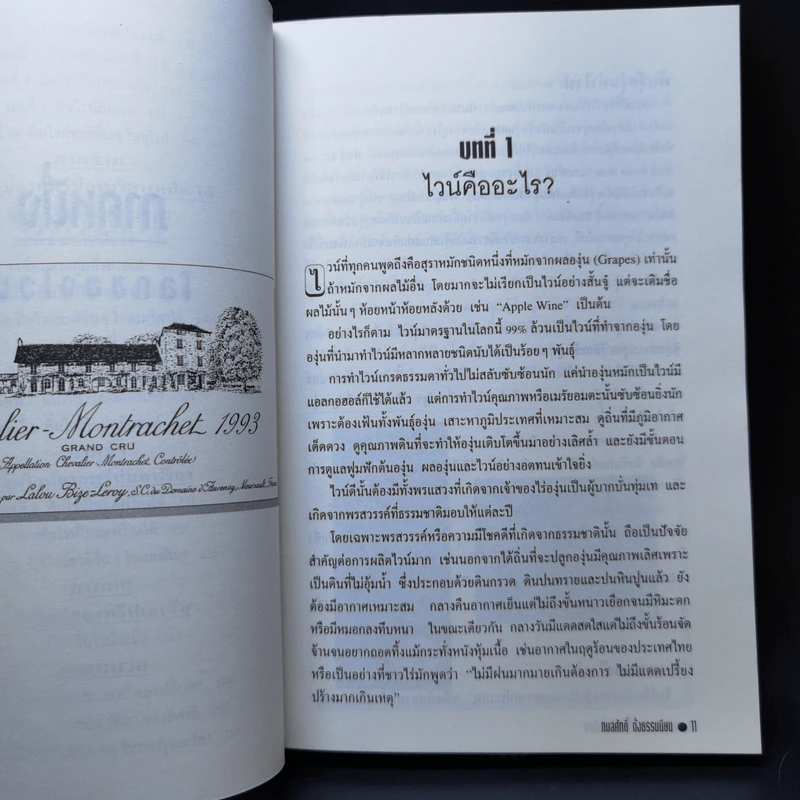 lier-Montrachet 1993
GRAND CRU
Appellation Chevalier-Montrachet Contrôlée
par Lalou Bize-Leroy, S.C. du Domaine d'Auvenay, Meursault,
บทที่ 1
ไวน์คืออะไร?
ไวน์ที่ทุกคนพูดถึงคือสุราหมักชนิดหนึ่งที่หมักจากผลองุ่น (Grapes) เท่านั้น
ถ้าหมักจากผลไม้อื่น โดยมากจะไม่เรียกเป็นไวน์อย่างสั้นจู๋ แต่จะเติมชื่อ
ผลไม้นั้นๆ ห้อยหน้าห้อยหลังด้วย เช่น “Apple Wine” เป็นต้น
อย่างไรก็ตาม ไวน์มาตรฐานในโลกนี้ 99% ล้วนเป็นไวน์ที่ทำจากองุ่น โดย
องุ่นที่นำมาทำไวน์มีหลากหลายชนิดนับได้เป็นร้อยๆ พันธุ์
การทำไวน์เกรดธรรมดาทั่วไปไม่สลับซับซ้อนนัก แค่นำองุ่นหมักเป็นไวน์มี
แอลกอฮอล์ก็ใช้ได้แล้ว แต่การทำไวน์คุณภาพหรือเมรัยอมตะนั้นซับซ้อนยิ่งนัก
เพราะต้องเฟ้นทั้งพันธุ์องุ่น เสาะหาภูมิประเทศที่เหมาะสม ดูถิ่นที่มีภูมิอากาศ
เด็ดดวง ดูคุณภาพดินที่จะทำให้องุ่นเติบโตขึ้นมาอย่างเลิศล้ำ และยังมีขั้นตอน
การดูแลฟูมฟักต้นองุ่น ผลองุ่นและไวน์อย่างอดทนเข้าใจยิ่ง
ไวน์ดีนั้นต้องมีทั้งพรแสวงที่เกิดจากเจ้าของไร่องุ่นเป็นผู้บากบั่นทุ่มเท และ
เกิดจากพรสวรรค์ที่ธรรมชาติมอบให้แต่ละปี
โดยเฉพาะพรสวรรค์หรือความมีโชคดีที่เกิดจากธรรมชาตินั้น ถือเป็นปัจจัย
สำคัญต่อการผลิตไวน์มาก เช่นนอกจากได้ถิ่นที่จะปลูกองุ่นมีคุณภาพเลิศเพราะ
เป็นดินที่ไม่อุ้มน้ำ ซึ่งประกอบด้วยดินกรวด ดินปนทรายและปนหินปูนแล้ว ยัง
ต้องมีอากาศเหมาะสม กลางคืนอากาศเย็นแต่ไม่ถึงขั้นหนาวเยือกจนมีหิมะตก
หรือมีหมอกลงทึบหนา ในขณะเดียวกัน กลางวันมีแดดสดใสแต่ไม่ถึงขั้นร้อนจัด
จ้าจนอยากถอดทิ้งแม้กระทั่งหนังหุ้มเนื้อ เช่นอากาศในฤดูร้อนของประเทศไทย
หรือเป็นอย่างที่ชาวไร่มักพูดว่า “ไม่มีฝนมากมายเกินต้องการ ไม่มีแดดเปรี้ยง
ปร้างมากเกินเหตุ”
กมลศักดิ์ ตั้งธรรมนิยม ● 11